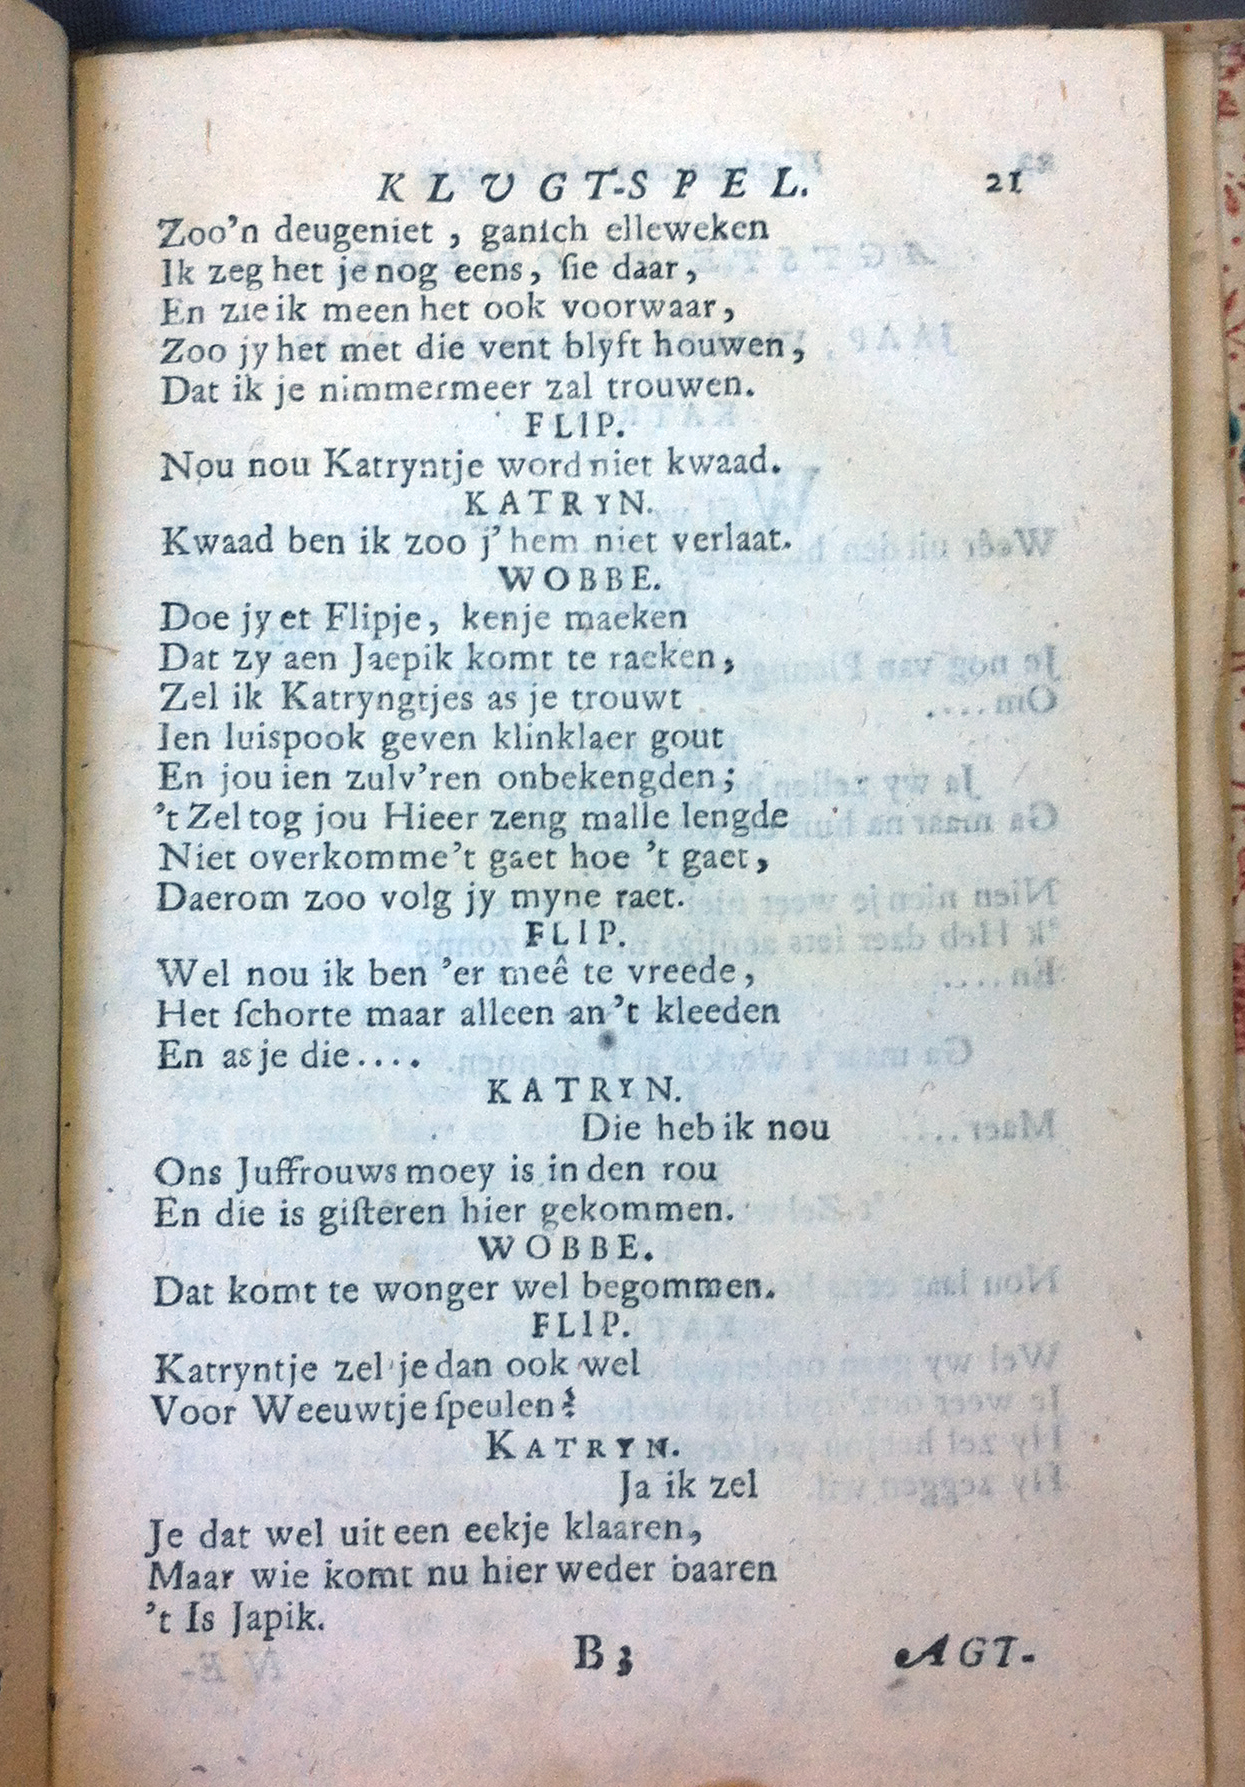 KLUGT-SPEL. 21
Zoo'n deugeniet , ganſch elleweken
Ik zeg het je nog eens, ſie daar,
En zie ik meen het ook voorwaar,
Zoo jy het met die vent blyft houwen,
Dat ik je nimmermeer zal trouwen.
FLIP.
Nou nou Katryntje word niet kwaad.
KATRYN.
Kwaad ben ik zoo j' hem niet verlaat.
WOBBE.
Doe jy et Flipje, kenje maeken
Dat zy aen Jaepik komt te raeken,
Zel ik Katryngtjes as je trouwt
Ien luispook geven klinklaer gout
En jou ien zulv'ren onbekengden;
't Zel tog jou Hieer zeng malle lengde
Niet overkomme 't gaet hoe 't gaet,
Daerom zoo volg jy myne raet.
FLIP.
Wel nou ik ben 'er meê te vreede,
Het ſchorte maar alleen an 't kleeden
En as je die....
KATRYN.
Die heb ik nou
Ons Juffrouws moey is in den rou
En die is giſteren hier gekommen.
WOBBE.
Dat komt te wonger wel begommen.
FLIP.
Katryntje zel je dan ook wel
Voor Weeuwtje ſpeulen?
KATRYN.
Ja ik zel
Je dat wel uit een eekje klaaren,
Maar wie komt nu hier weder baaren
't Is Japik.
B 3 AGT-